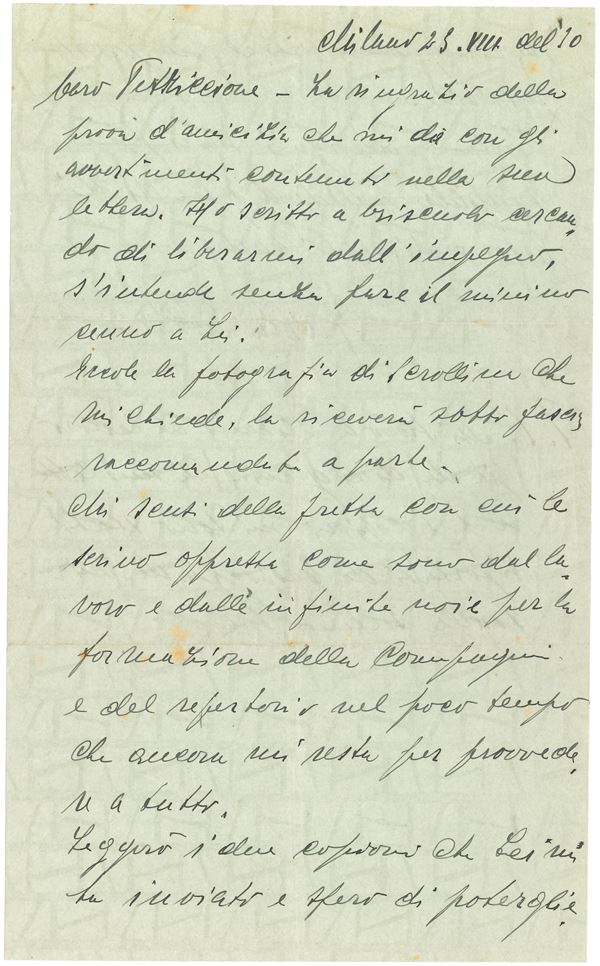 Milano 23.VIII. del 30
Caro Petriccione - La ringrazio della
prova d'amicizia che mi dà con gli
avvertimenti contenuti nella sua
lettera. Ho scritto a Criscuolo cercan,
do di liberarmi dall'impegno,
s'intende senza fare il minimo
cenno a Lei.
Eccole la fotografia di Scrollina che
mi chiede, la riceverà sotto fascia
raccomandata a parte.
Mi scusi della fretta con cui le
scrivo oppressa come sono dal la,
voro e dalle infinite noie per la
formazione della Compagnia
e del repertorio nel poco tempo
che ancora mi resta per provvede,
re a tutto.
Leggerò i due copioni che Lei mi
ha inviato e spero di poterglie,